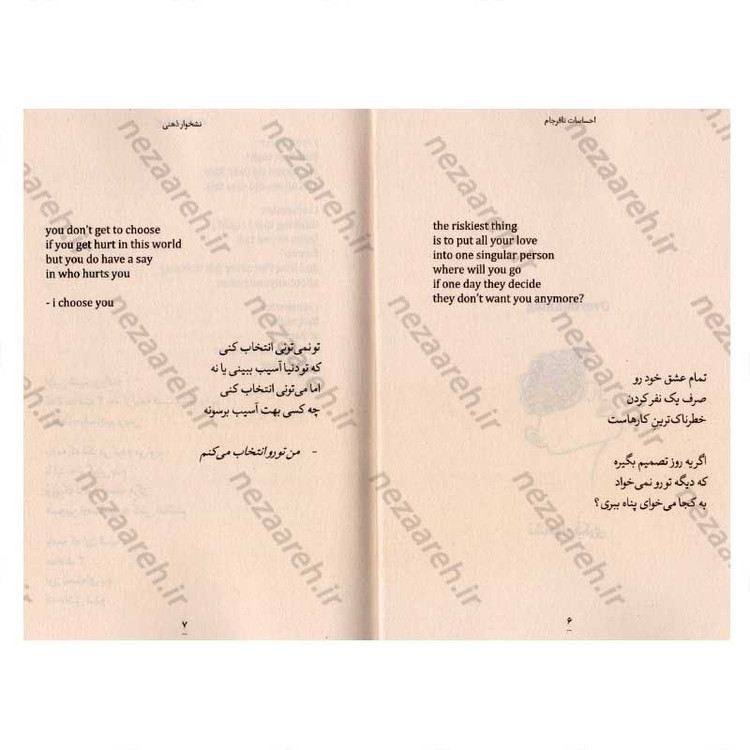 احساسات نافرجام
the riskiest thing
is to put all your love
into one singular person
where will you go
if one day they decide
they don't want you anymore?
تمام عشق خود رو
صرف یک نفر کردن
خطرناک‌ترین کارهاست
اگر یه روز تصمیم بگیره
که دیگه تو رو نمی‌خواد
به کجا می‌خوای پناه ببری؟
۶
نشخوار ذهنی
you don't get to choose
if you get hurt in this world
but you do have a say
in who hurts you
- i choose you
تو نمی‌تونی انتخاب کنی
که تو دنیا آسیب ببینی یا نه
اما می‌تونی انتخاب کنی
چه کسی بهت آسیب برسونه
- من تو رو انتخاب می‌کنم
۷
nezaareh.ir